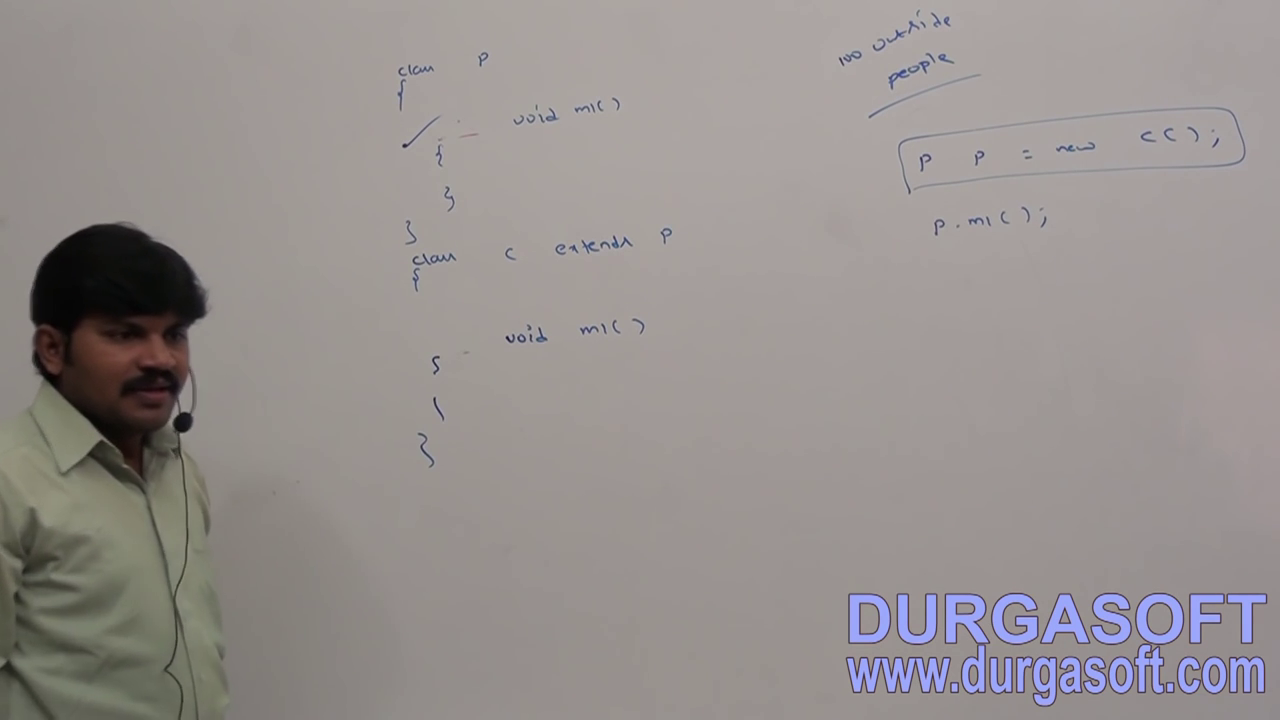 class P
{
void m1()
{
}
}
class C extends P
{
void m1()
{
}
100 outside
people
P p = new C();
p.m1();
DURGASOFT
www.durgasoft.com